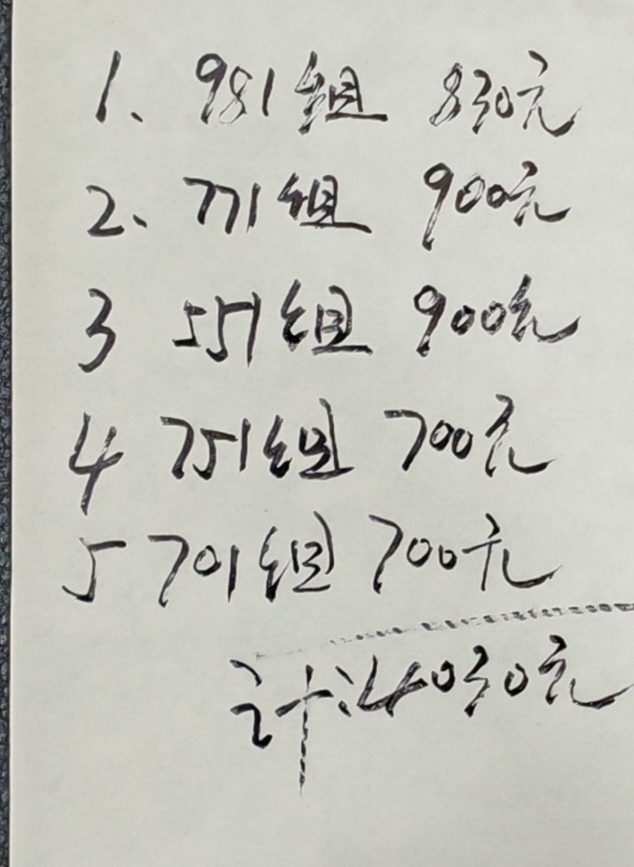 1、981组 830元
2、771组 900元
3 551组 900元
4 751组 700元
5 701组 700元
计:4030元